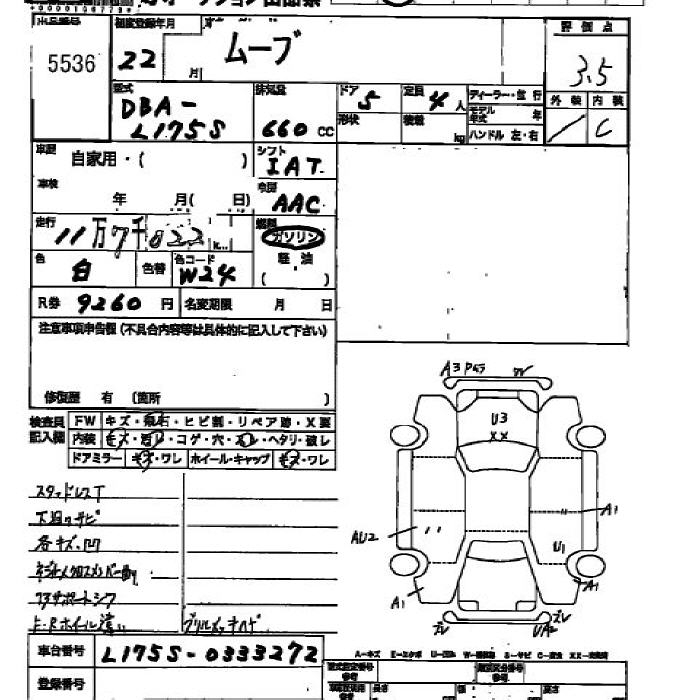 出品番号 初度登録年月 評価点
5536 22 月 ムーブ 3.5
型式 排気量 ドア 定員 ディーラー・並行
DBA- 5 4人 モデル年式 年 外装 内装
L175S 660cc 形状 積載 kg ハンドル 左・右 / C
車歴 自家用・( ) シフト IAT
車検 年 月( 日) 冷房 AAC
走行 11万7千022 km 燃料 ガソリン
軽油
色 白 色替 色コード W24 ( )
R券 9260円 名変期限 月 日
注意事項申告報(不具合内容等は具体的に記入して下さい)
修復歴 有 (箇所 )
検査員記入欄 FW キズ・飛石・ヒビ割・リペア跡・X要
内装 キズ・汚レ・コゲ・穴・スレ・ヘタリ・破レ
ドアミラー キズ・ワレ ホイール・キャップ キズ・ワレ
スタッドレスT
下廻りサビ
各キズ、凹
F-Rホイール違い
車台番号 L175S-0333272
登録番号
A3 ワレ
U3
XX
A1
AU2
U1
A1
A1
ズレ UA2 ズレ
A-キズ E-エクボ U-凹み W-補修跡 S-サビ C-腐食 XX-交換済
型式指定番号 類別区分番号
長さ 幅 高さ